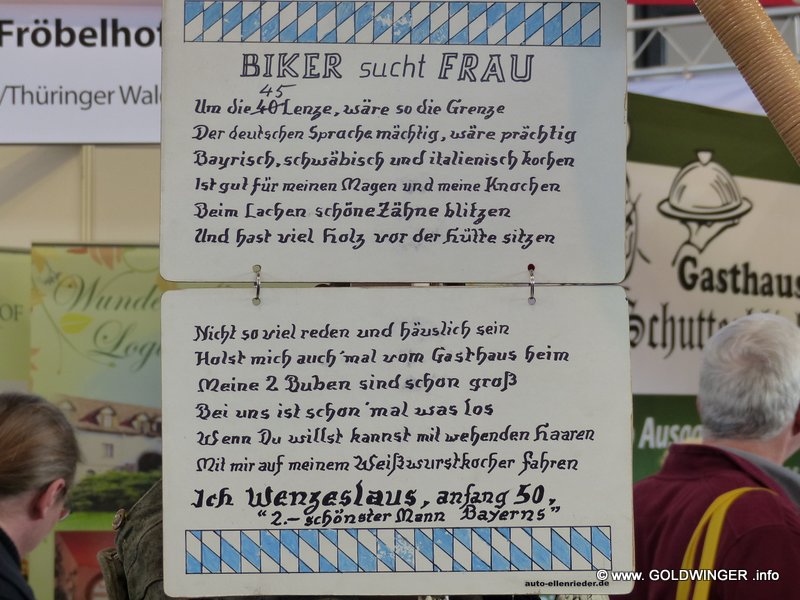 Fröbelhof
/Thüringer Wal
BIKER sucht FRAU
45
Um die 40 Lenze, wäre so die Grenze
Der deutschen Sprache mächtig, wäre prächtig
Bayrisch, schwäbisch und italienisch kochen
Ist gut für meinen Magen und meine Knochen
Beim Lachen schöne Zähne blitzen
Und hast viel Holz vor der Hütte sitzen
Nicht so viel reden und häuslich sein
Holst mich auch 'mal vom Gasthaus heim
Meine 2 Buben sind schon groß
Bei uns ist schon 'mal was los
Wenn Du willst kannst mit wehenden Haaren
Mit mir auf meinem Weißwurstkocher fahren
Ich Wenzeslaus, anfang 50,
"2.- schönster Mann Bayerns"
auto-ellenrieder.de
Gasthaus
OF
© www. GOLDWINGER .info